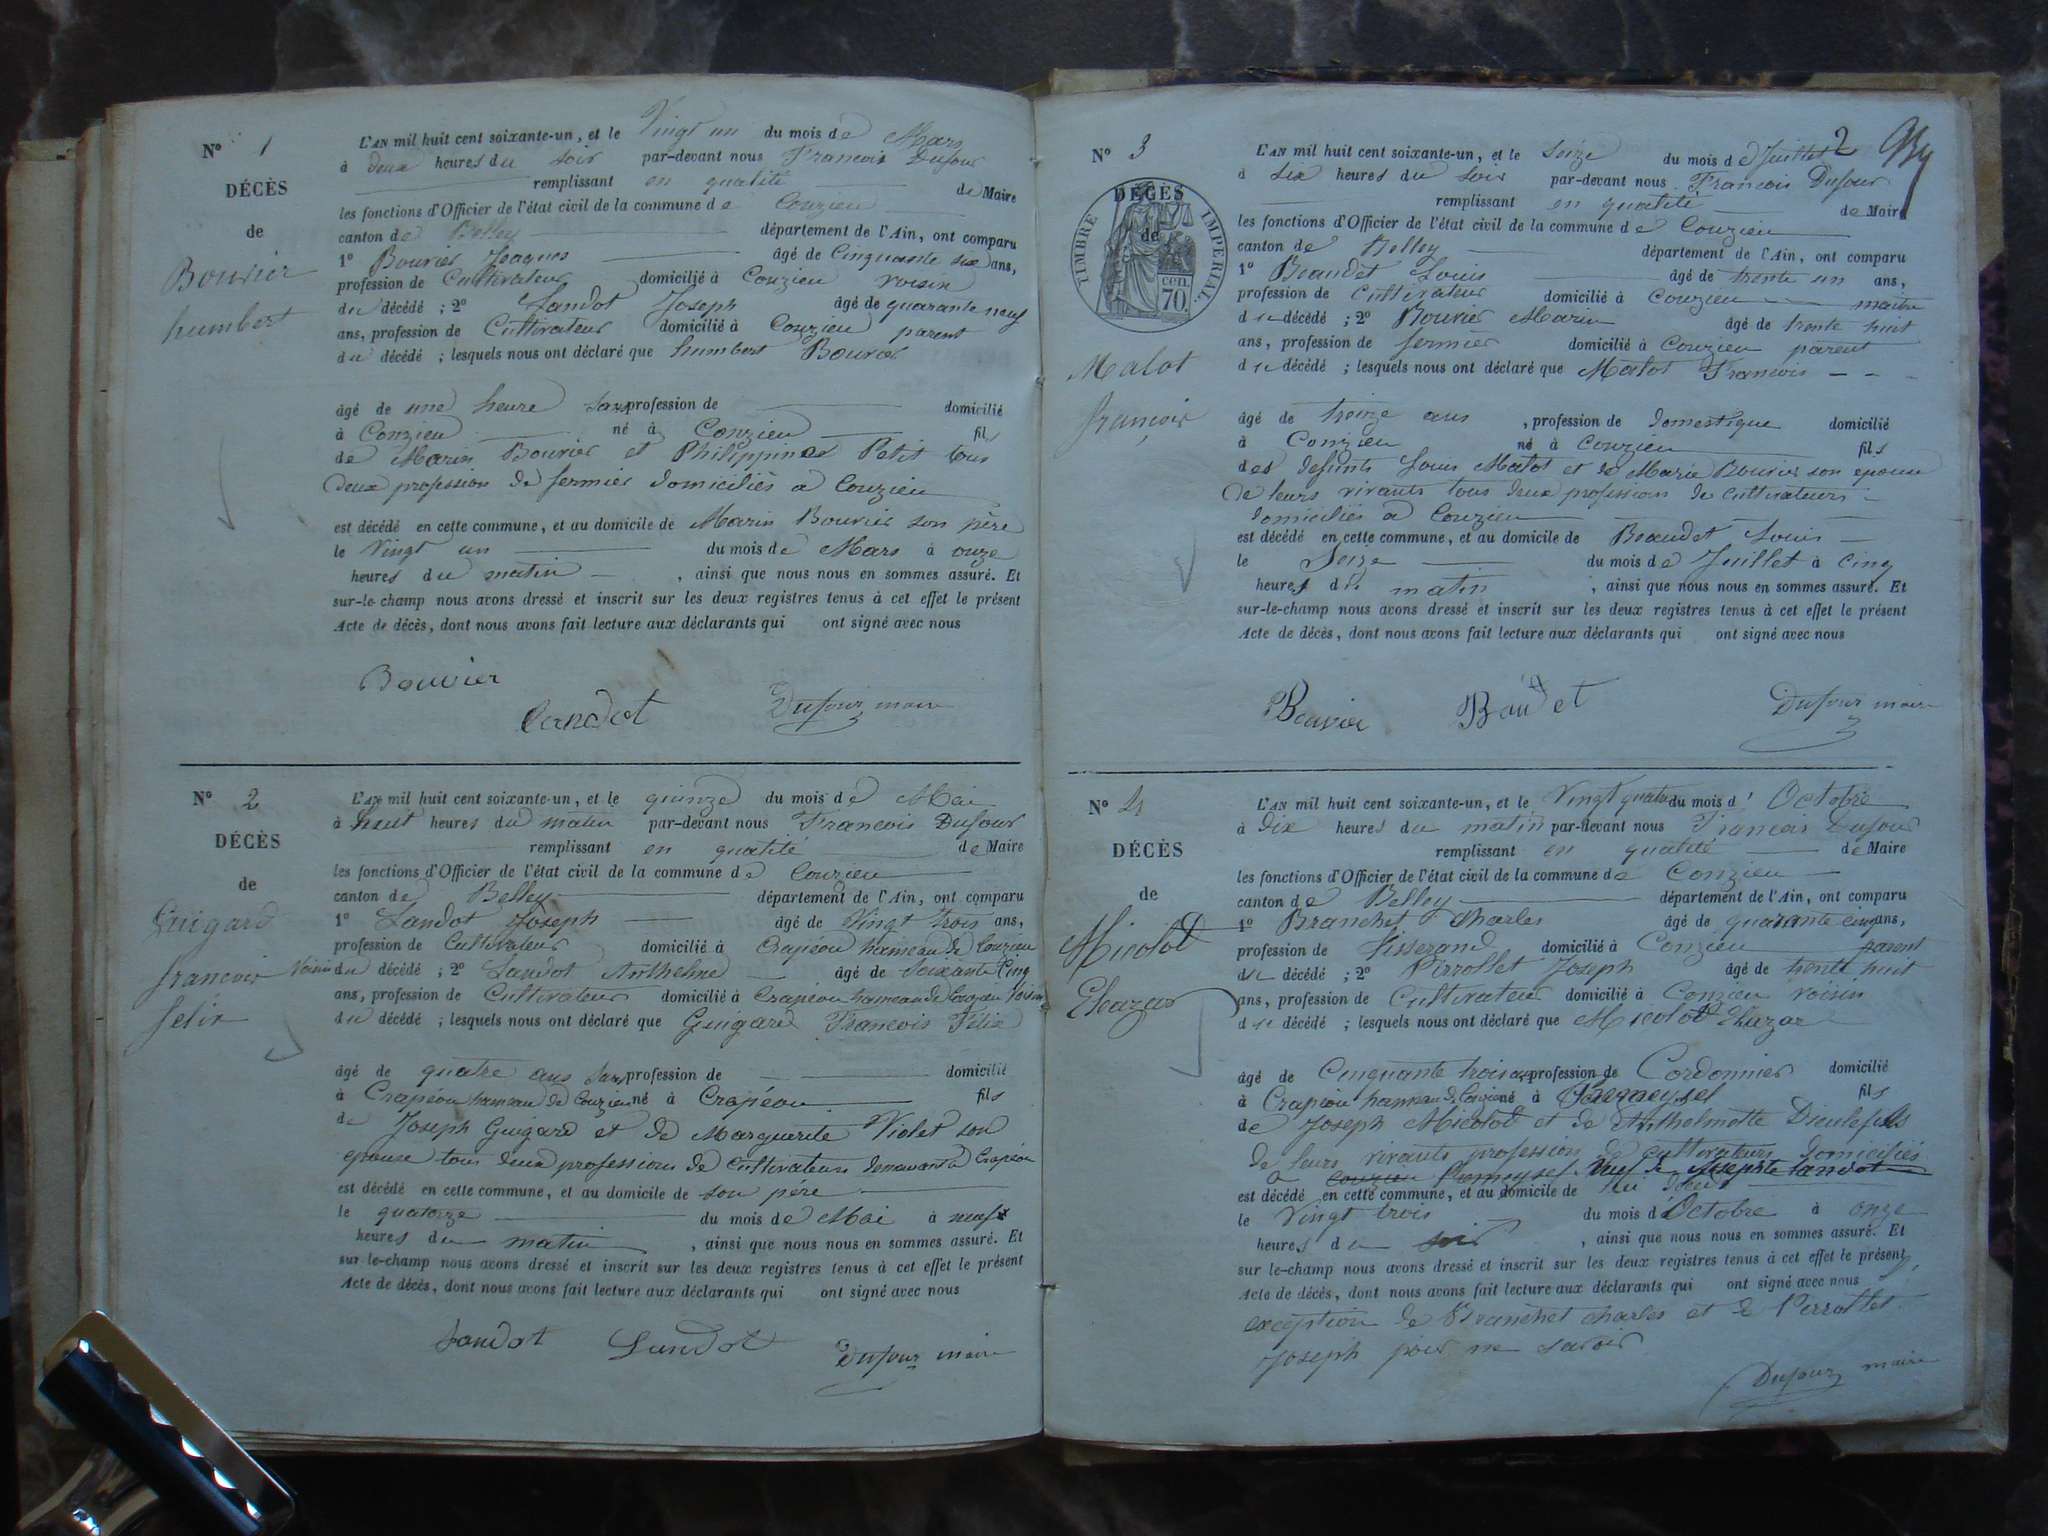 N° 1
DÉCÈS
de
Bouvier
humbert
L'AN mil huit cent soixante-un, et le Vingt un du mois de Mars
à deux heures du soir par-devant nous Francois Dufour
remplissant en qualité de Maire
les fonctions d'Officier de l'état civil de la commune de Conzieu
canton de Belley département de l'Ain, ont comparu
1° Bouvier Joaques âgé de Cinquante six ans,
profession de Cultivateur domicilié à Conzieu voisin
du décédé ; 2° Landot Joseph âgé de quarante neuf
ans, profession de Cultivateur domicilié à Conzieu parent
du décédé ; lesquels nous ont déclaré que humbert Bouvier
âgé de une heure sans profession de domicilié
à Conzieu né à Conzieu fils
de Marin Bouvier et Philippine Petit tous
deux profession de fermier domiciliés à Conzieu
est décédé en cette commune, et au domicile de Marin Bouvier son père
le Vingt un du mois de Mars à onze
heures du matin , ainsi que nous nous en sommes assuré. Et
sur-le-champ nous avons dressé et inscrit sur les deux registres tenus à cet effet le présent
Acte de décès, dont nous avons fait lecture aux déclarants qui ont signé avec nous
Bouvier
Landot Dufour maire
N° 2
DÉCÈS
de
Guigard
francois
felix
L'AN mil huit cent soixante-un, et le quinze du mois de Mai
à huit heures du matin par-devant nous Francois Dufour
remplissant en qualité de Maire
les fonctions d'Officier de l'état civil de la commune de Conzieu
canton de Belley département de l'Ain, ont comparu
1° Landot Joseph âgé de Vingt trois ans,
profession de Cultivateur domicilié à Crapéou hameau de Conzieu
Voisin du décédé ; 2° Landot Anthelme âgé de Soixante Cinq
ans, profession de Cultivateur domicilié à Crapéou hameau de Conzieu Voisin
du décédé ; lesquels nous ont déclaré que Guigard Francois Félix
âgé de quatre ans sans profession de domicilié
à Crapéou hameau de Conzieu né à Crapéou fils
de Joseph Guigard et de Marguerite Violet son
epouse tous deux professions de Cultivateurs demeurant à Crapéou
est décédé en cette commune, et au domicile de son père
le quatorze du mois de Mai à neuf
heures du matin , ainsi que nous nous en sommes assuré. Et
sur-le-champ nous avons dressé et inscrit sur les deux registres tenus à cet effet le présent
Acte de décès, dont nous avons fait lecture aux déclarants qui ont signé avec nous
Landot Landot Dufour maire
2
N° 3
DÉCÈS
de
TIMBRE IMPERIAL
70 cen.
Malot
françois
L'AN mil huit cent soixante-un, et le Seize du mois de Juillet
à six heures du soir par-devant nous Francois Dufour
remplissant en qualité de Maire
les fonctions d'Officier de l'état civil de la commune de Conzieu
canton de Belley département de l'Ain, ont comparu
1° Beaudet Louis âgé de trente un ans,
profession de Cultivateur domicilié à Conzieu maitre
du décédé ; 2° Bouvier Marin âgé de trente huit
ans, profession de fermier domicilié à Conzieu parent
du décédé ; lesquels nous ont déclaré que Malot Francois
âgé de treize ans , profession de domestique domicilié
à Conzieu né à Conzieu fils
des defunts Louis Malot et de Marie Bouvier son epouse
de leurs vivants tous deux professions de cultivateurs
domiciliés à Conzieu
est décédé en cette commune, et au domicile de Beaudet Louis
le Seize du mois de Juillet à cinq
heures du matin , ainsi que nous nous en sommes assuré. Et
sur-le-champ nous avons dressé et inscrit sur les deux registres tenus à cet effet le présent
Acte de décès, dont nous avons fait lecture aux déclarants qui ont signé avec nous
Bouvier Baudet Dufour maire
N° 4
DÉCÈS
de
Micolod
Eleazar
L'AN mil huit cent soixante-un, et le Vingt quatre du mois d'Octobre
à dix heures du matin par-devant nous Francois Dufour
remplissant en qualité de Maire
les fonctions d'Officier de l'état civil de la commune de Conzieu
canton de Belley département de l'Ain, ont comparu
1° Branchet Charles âgé de quarante cinq ans,
profession de Tisserand domicilié à Conzieu parent
du décédé ; 2° Pirrollet Joseph âgé de trente huit
ans, profession de Cultivateur domicilié à Conzieu voisin
du décédé ; lesquels nous ont déclaré que Micolod Eleazar
âgé de Cinquante trois ans profession de Cordonnier domicilié
à Crapeou hameau de Conzieu né à Premeysel fils
de Joseph Micolod et de Anthelmette Dieulefils
de leurs vivants profession de cultivateurs domiciliés
à Conzieu Premeysel Veuf de Josephte Landot
est décédé en cette commune, et au domicile de
le Vingt trois du mois d'Octobre à onze
heures du soir , ainsi que nous nous en sommes assuré. Et
sur le-champ nous avons dressé et inscrit sur les deux registres tenus à cet effet le présent
Acte de décès, dont nous avons fait lecture aux déclarants qui ont signé avec nous
exception de Branchet charles et de Perrollet
Joseph pour ne savoir
Dufour maire